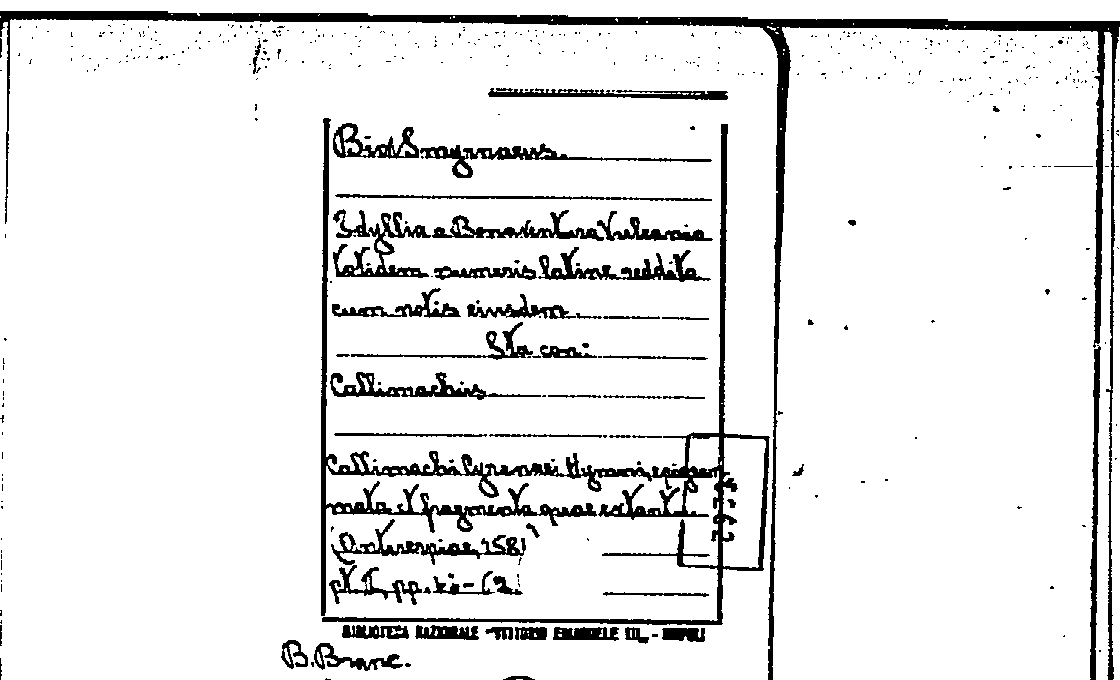 Bio Smyrnaeus.
Idyllia a Bonaventura Vulcanio
totidem numeris latine reddita
cum notis eiusdem.
Sta con:
Callimachus.
Callimachi Cyrenaei Hymni, epigram
mata et fragmenta quae extant.
Antverpiae, 1581
pt. II, pp.
BIBLIOTECA NAZIONALE "VITTORIO EMANUELE III" - NAPOLI
B. Branc.